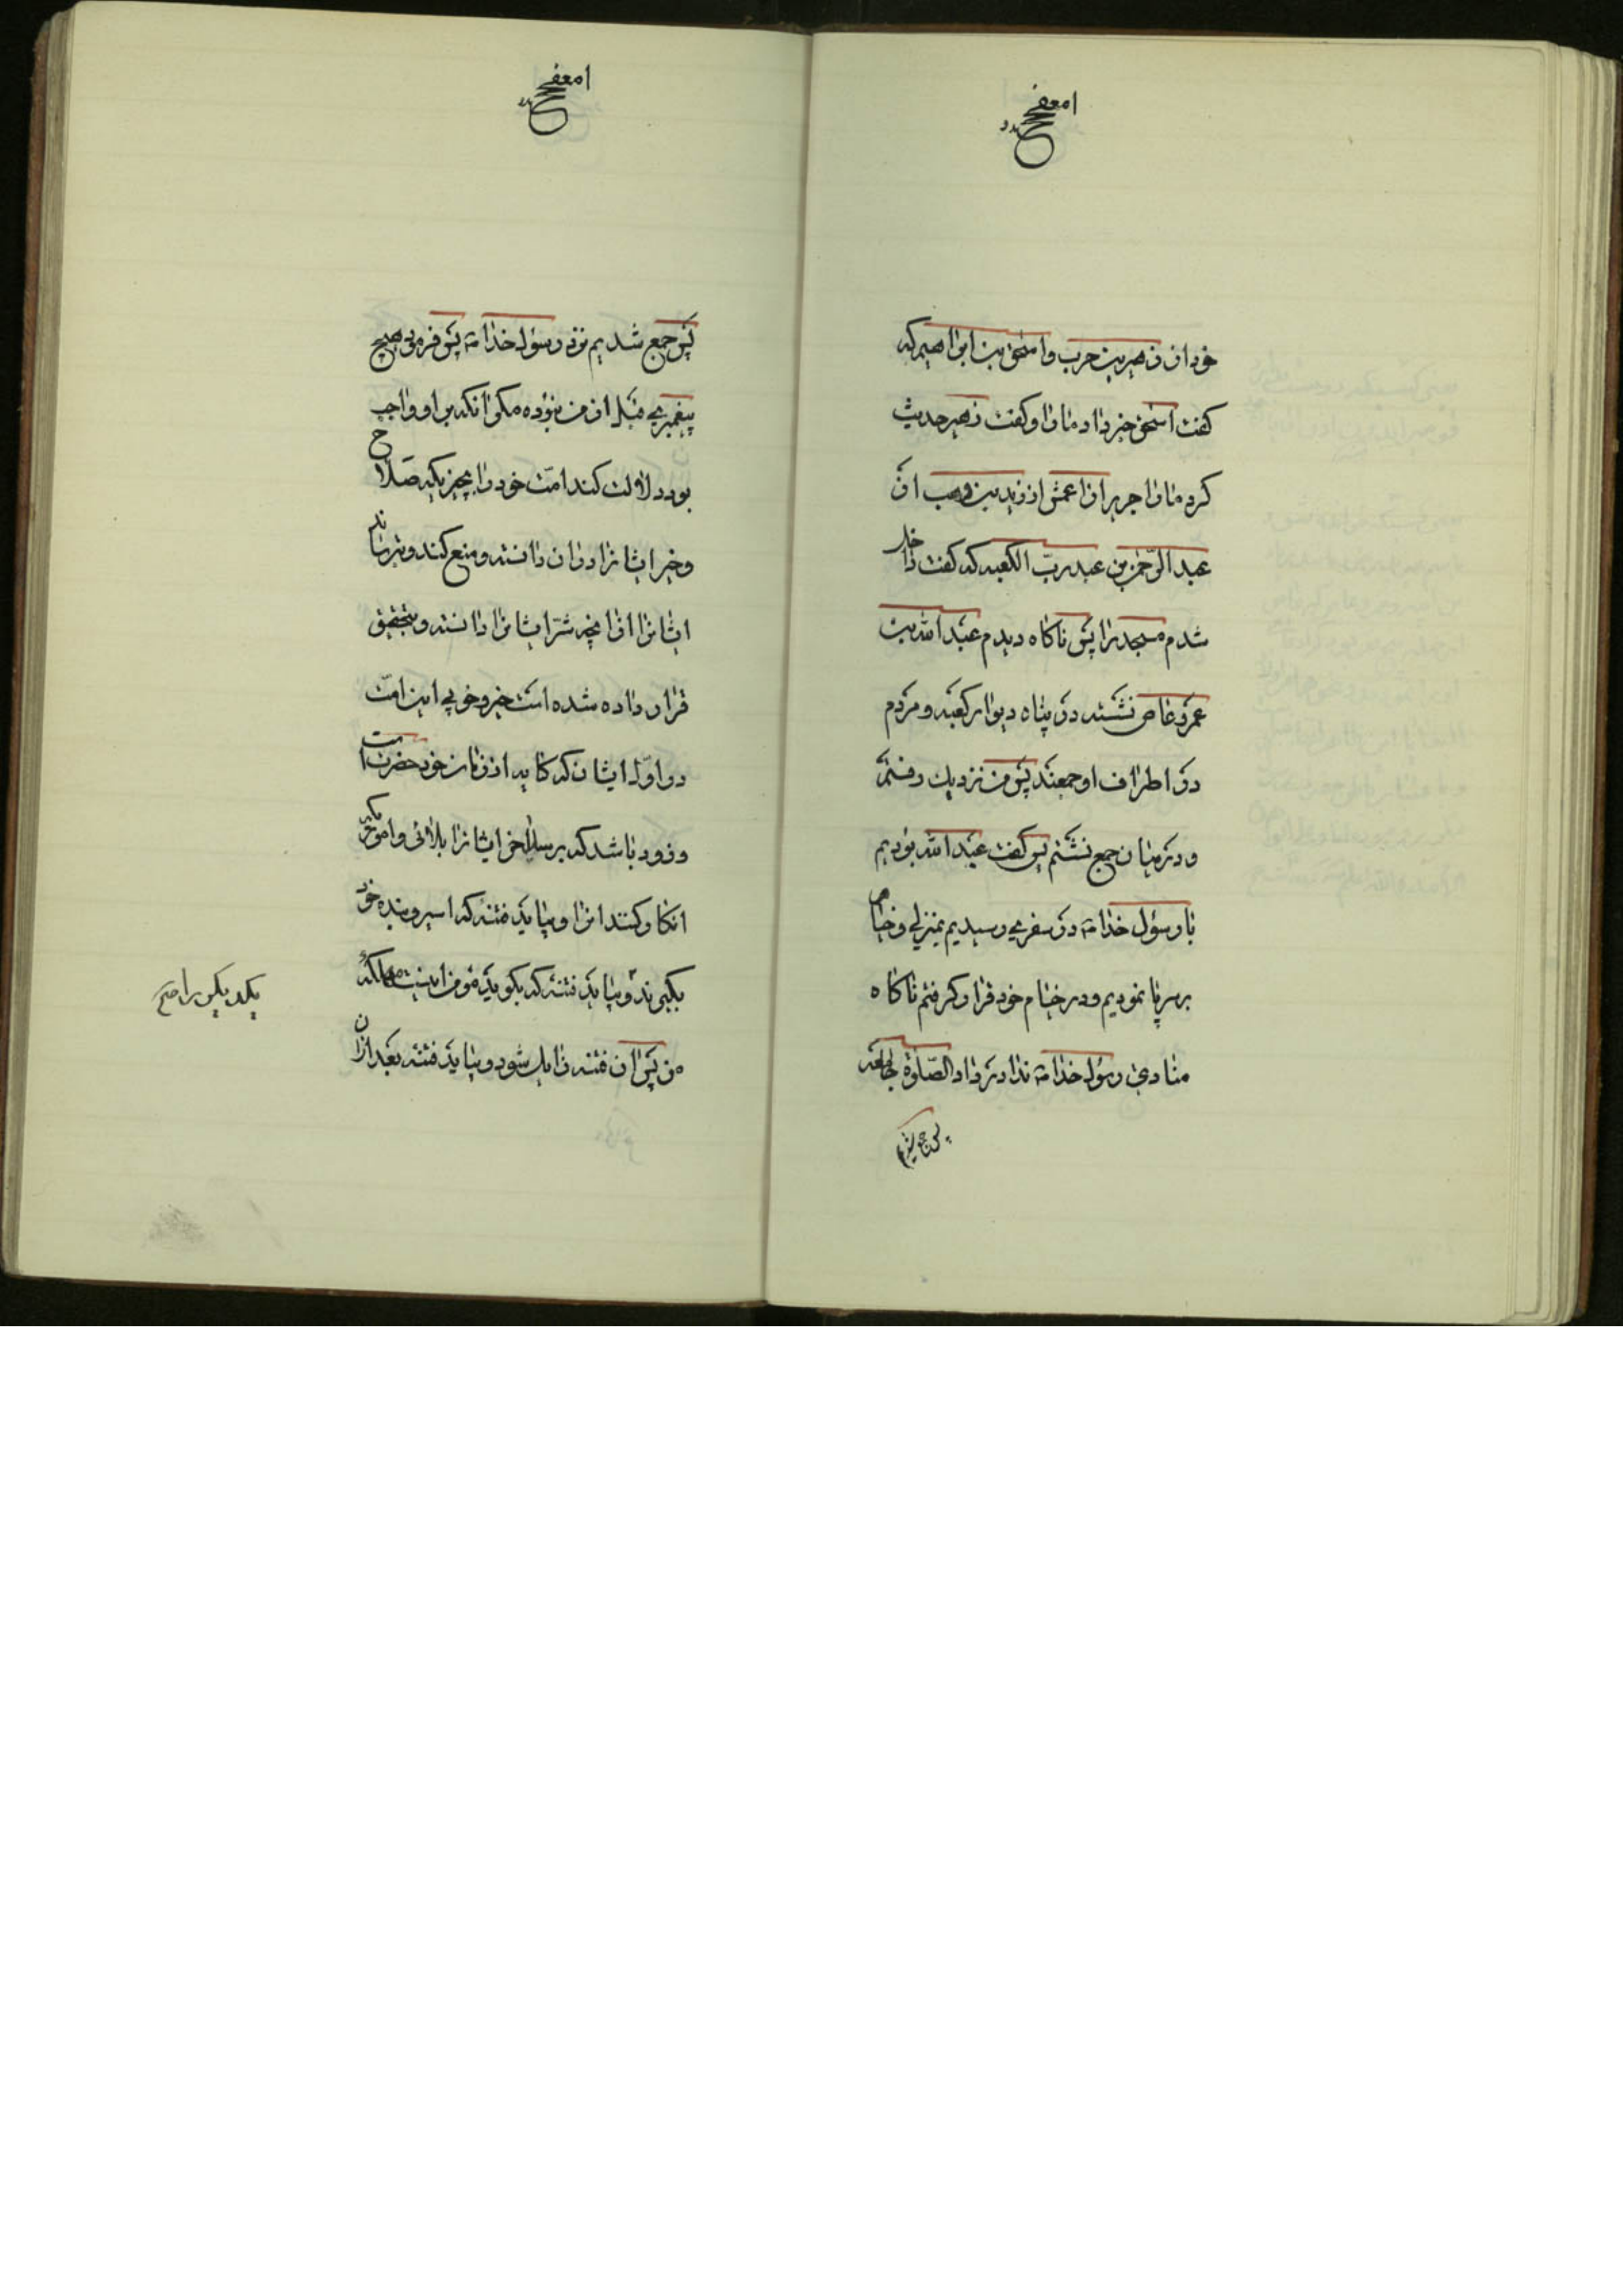 خود از زهیر بن حرب و اسحق بن ابراهیم که
گفت اسحق خبر داد ما را و گفت زهیر حدیث
کرد ما را جریر از اعمش از زید بن وهب از
عبد الرّحمن بن عبد ربّ الکعبه که گفت داخل
شدم مسجد را پس ناگاه دیدم عبد الله بن
عمرو عاص نشسته در پناه دیوار کعبه و مردم
در اطراف او جمعند پس من نزدیک رفتم
و در میان جمع نشستم پس گفت عبد الله بودیم
با رسول خدا در سفری رسیدیم بمنزلی و خیام
بر سر پا نمودیم و در خیام خود قرار گرفتم ناگاه
منادی رسول خدا ندا در داد الصّلوة جامعه
پس جمع شدیم
پس جمع شدیم نزد رسول خدا پس فرمود هیچ
پیغمبری قبل از من نبوده مگر آنکه بر او واجب
بود دلالت کند امّت خود را بچیزیکه صلاح
و خیر ایشانرا در آن دانسته و منع کند و بترساند
ایشانرا از آنچه شرّ ایشانرا دانسته و بتحقیق
قرار داده شده است خیر و خوبی این امّت
در اوّل ایشان که از زمان خود حضرت است
و زود باشد که برسد ایشانرا بلائی و اموریکه
انکار کنند انرا و بیاید فتنه که اسیر و بنده خود
بگیرند و بیاید فتنه که بگوید مؤمن اینست
یکدیگر را صح
من پس آن فتنه زایل شود و بیاید فتنه بعد از آن